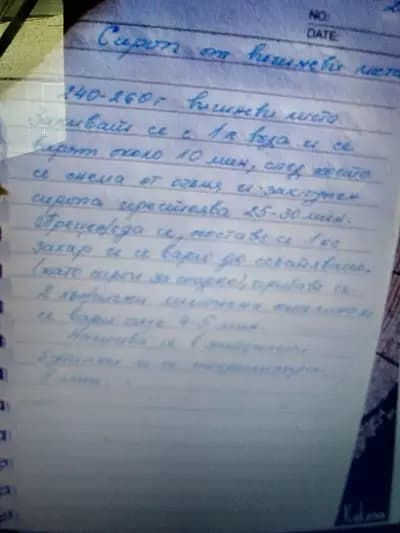 NO:
DATE:
Сироп от вишневи листа
240-260г вишневи листа
Заливат се с 1 л вода и се
варят около 10 мин, след което
се снема от огъня и захлупен
сиропа престоява 25-30 мин.
Прецежда се, поставя се 1 кг
захар и се вари до сгъстяване.
/като сироп за сладко/, прибавя се
2 лимонена киселина
се вари още 4-5 мин.
Налива се в
и се